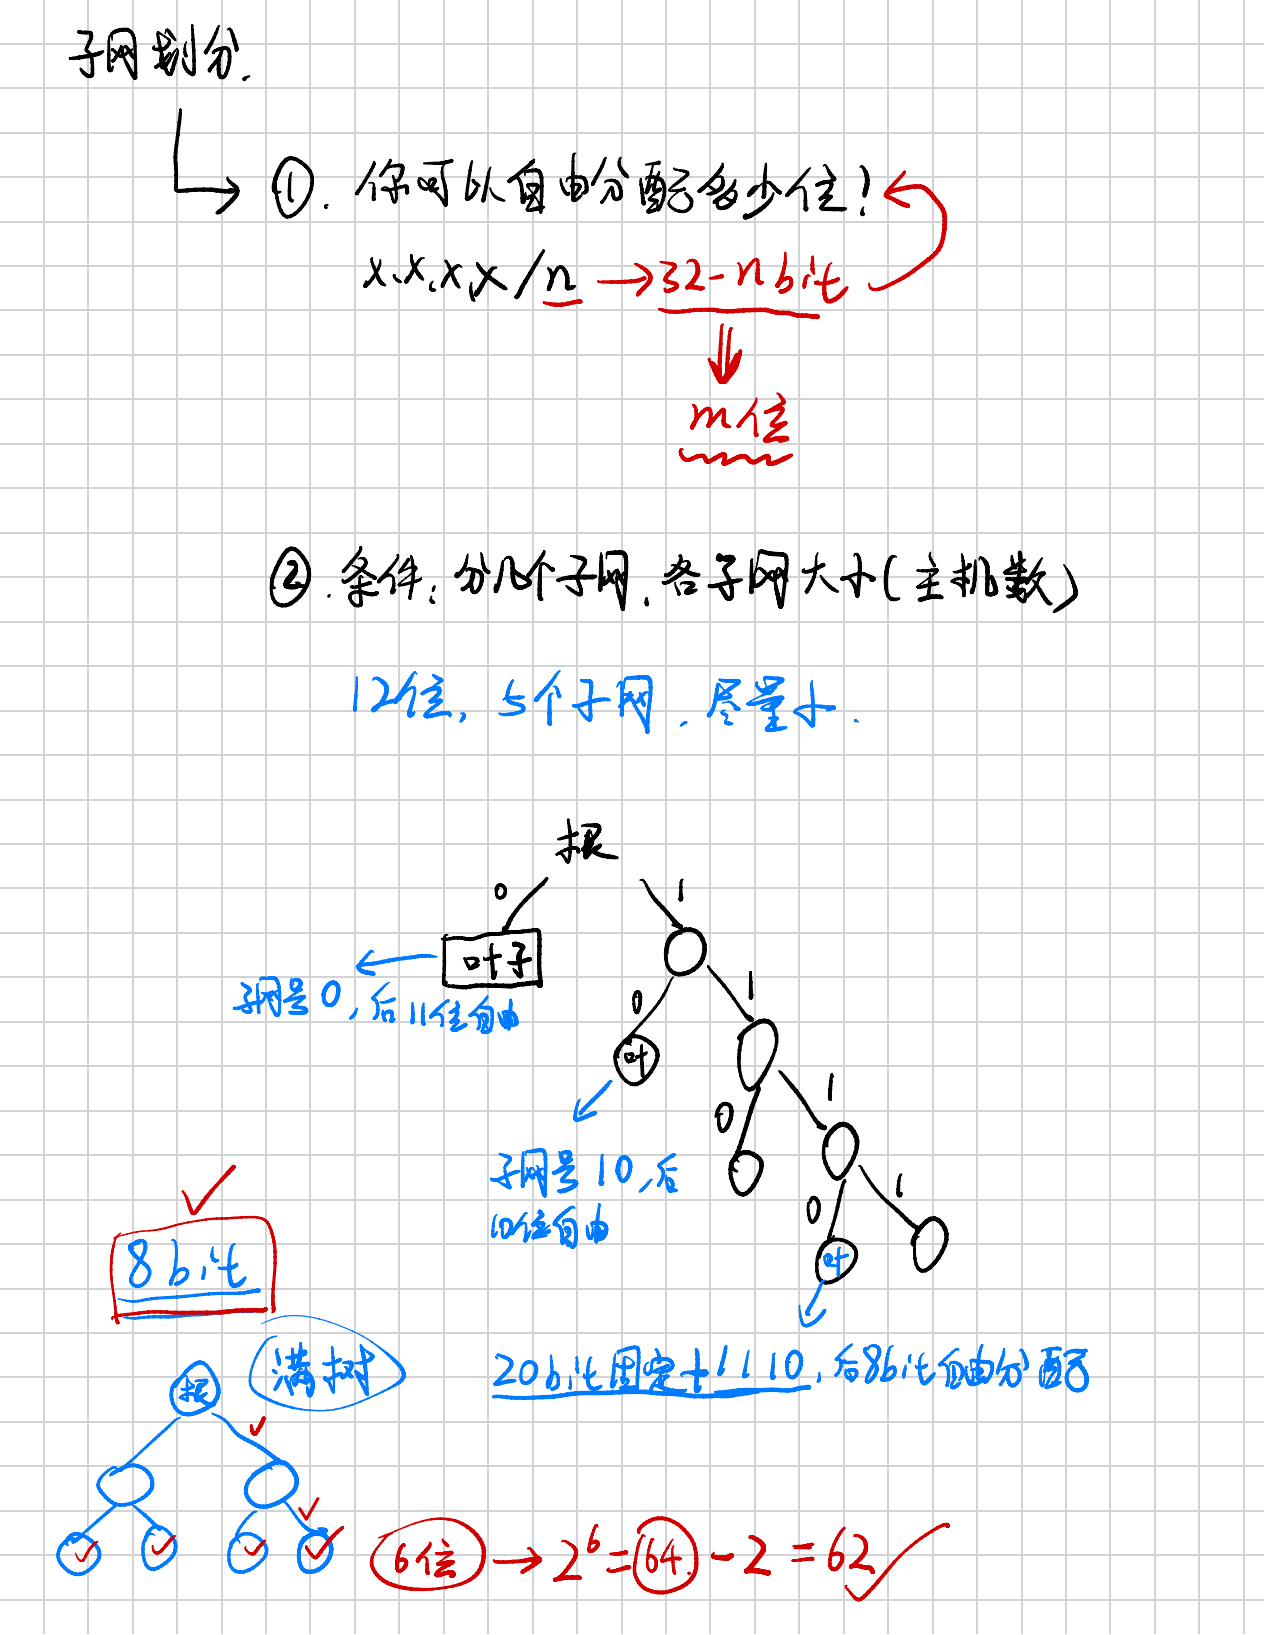 子网划分.
①. 你可以自由分配多少位?
x.x.x.x/n → 32-n bit
m位
②. 条件: 分几个子网, 各子网大小(主机数)
12位, 5个子网, 尽量小.
根
0 1
叶子
子网号0, 后11位自由
0 1
叶
0 1
子网号10, 后
10位自由
0 1
叶
8bit
满树
根
20bit固定+1110, 后8bit自由分配
6位 → 2^6 = 64 - 2 = 62